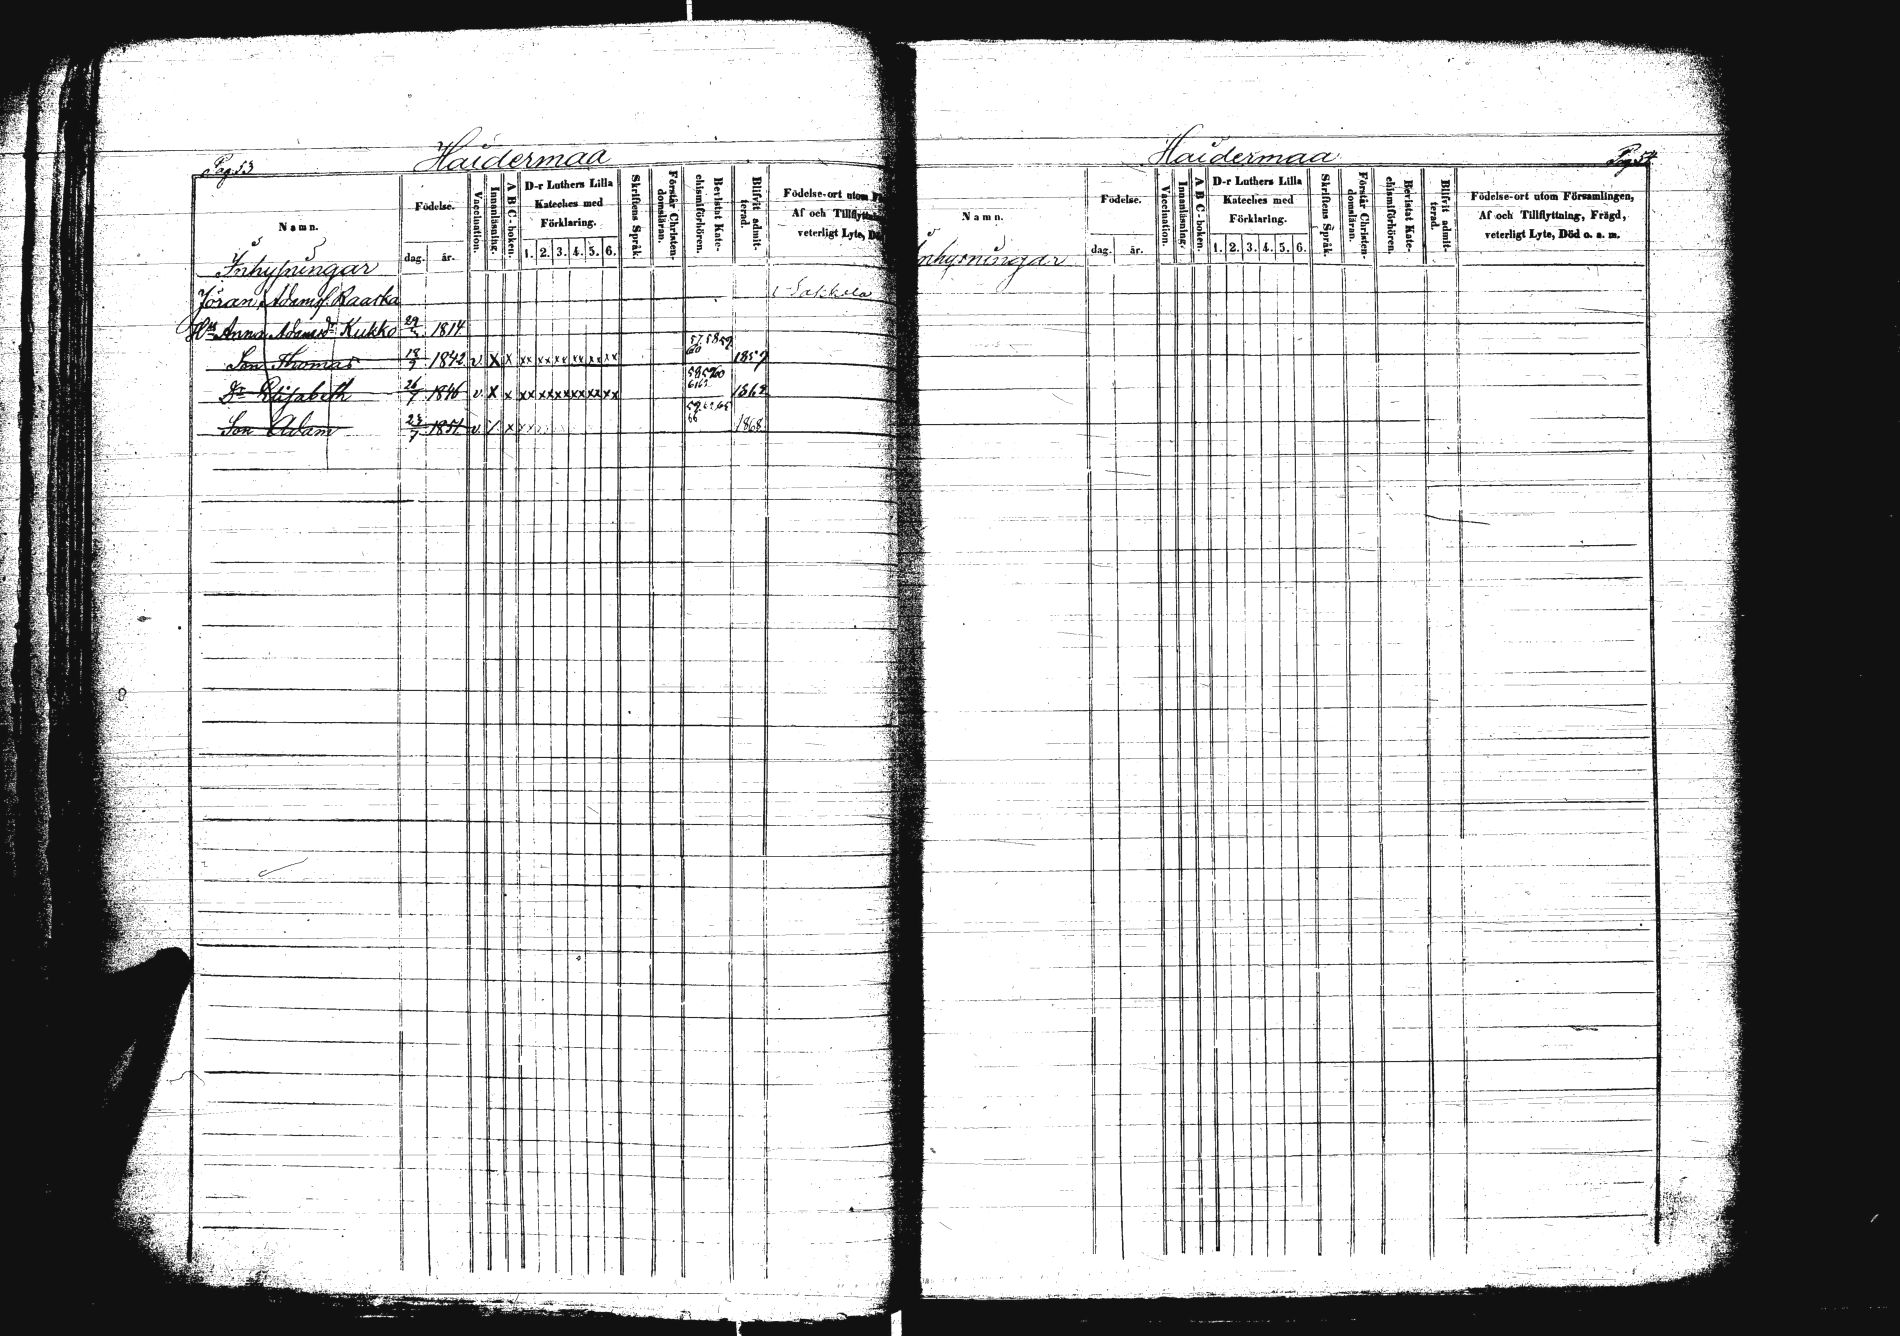 Pag. 53
Haidermaa
Namn.
Födelse.
dag.
år.
Vaccination.
Innanläsning.
A B C-boken.
D-r Luthers Lilla
Kateches med
Förklaring.
1. 2. 3. 4. 5. 6.
Skriftens Språk.
Förstår Christen-
domsläran.
Bevistat Kate-
chismiförhören.
Blifvit admit-
terad.
Födelse-ort utom
Af och Tillflyttning
veterligt Lyte, Död
Inhysningar
Jöran Adamss. Raaska
i Sakkola
Hu Anna Adamsdr Kukko 1814
Son Thomas 18/9 1842 v. X x xx xx xx xx xx xx 57 58 59 60 1859
Dr Elisabeth 26/7 1846 v. X x xx xx xx xx xx xx 58 59 60 61 62 1862
Son Adam 23/7 1851 v. 1868
Haidermaa
Pag. 54
Namn.
Födelse.
dag.
år.
Vaccination.
Innanläsning.
A B C-boken.
D-r Luthers Lilla
Kateches med
Förklaring.
1. 2. 3. 4. 5. 6.
Skriftens Språk.
Förstår Christen-
domsläran.
Bevistat Kate-
chismiförhören.
Blifvit admit-
terad.
Födelse-ort utom Församlingen,
Af och Tillflyttning, Frägd,
veterligt Lyte, Död o. s. m.
Inhysningar